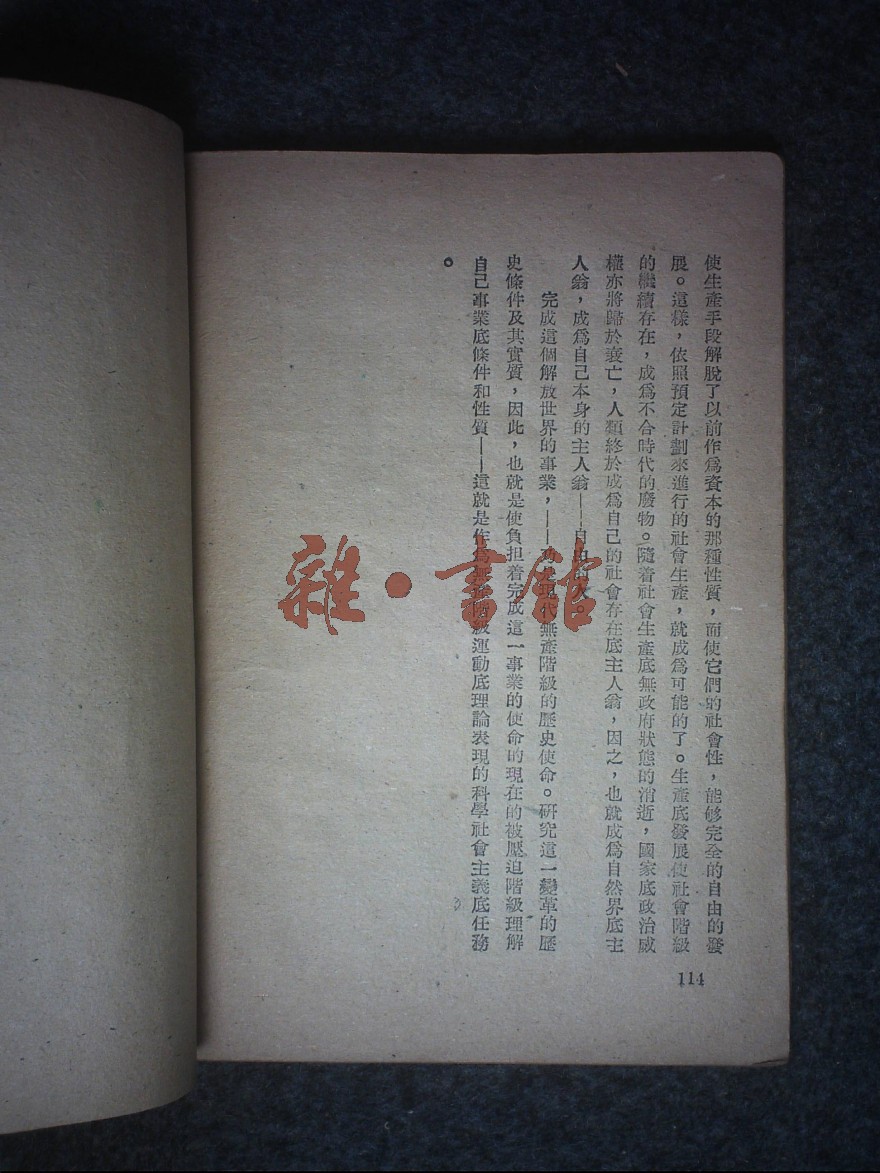 使生產手段解脫了以前作爲資本的那種性質，而使它們的社會性，能够完全的自由的發
展。這樣，依照預定計劃來進行的社會生產，就成爲可能的了。生產底發展使社會階級
的繼續存在，成爲不合時代的廢物。隨着社會生產底無政府狀態的消逝，國家底政治威
權亦將歸於衰亡，人類終於成爲自己的社會存在底主人翁，因之，也就成爲自然界底主
人翁，成爲自己本身的主人翁——自由的人。
完成這個解放世界的事業，——乃是現代無產階級的歷史使命。研究這一變革的歷
史條件及其實質，因此，也就是使負担着完成這一事業的使命的現在的被壓迫階級理解
自己事業底條件和性質——這就是作爲無產階級運動底理論表現的科學社會主義底任務
。
114
雜·書館